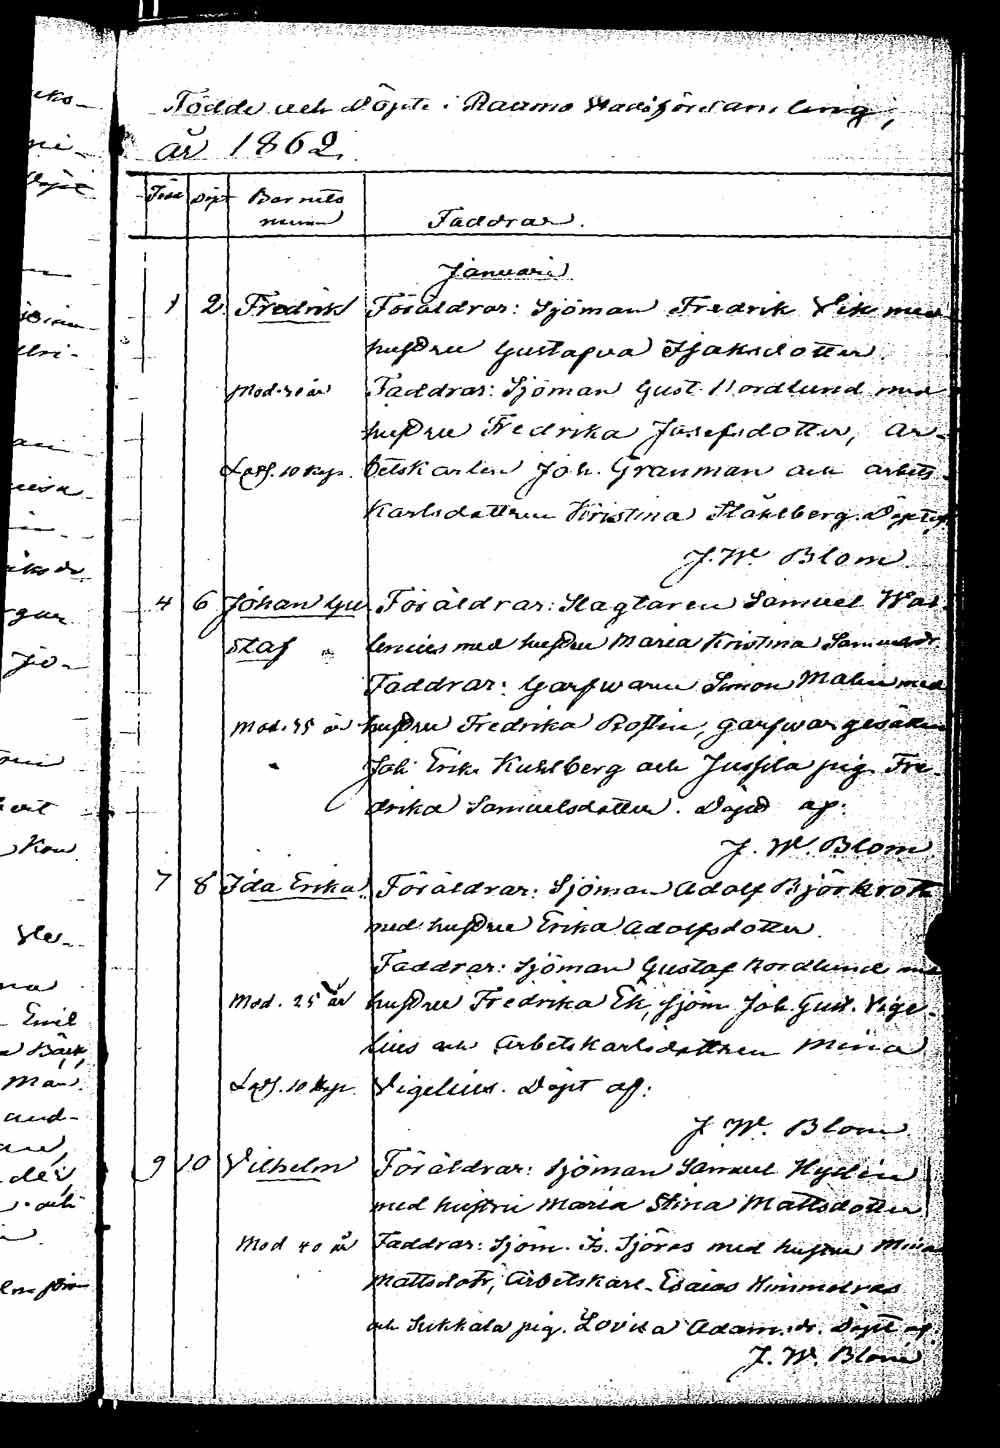 Födde och Döpte i Raumo Stadsförsamling,
år 1862.
Född Döpt Barnets namn Faddrar.
Januari
1 2 Fredrik Föräldrar: Sjöman Fredrik Vik med
hustru Gustafva Isaksdotter.
Mod. 30 år Faddrar: Sjöman Gust. Nordlund med
hustru Fredrika Josefsdotter, Ar-
10 kop. betskarlen Joh. Granman och arbets-
karlsdottren Kristina Ståhlberg. Döpt af
J. W. Blom
4 6 Johan Gu- Föräldrar: Slagtaren Samuel Wal-
staf lenius med hustru Maria Kristina Samuelsdr.
Faddrar: Garfwaren Simon Malin med
Mod. 35 år hustru Fredrika Roslin, garfwargesällen
Joh. Erik Kuhlberg och Jussila pig. Fre-
drika Samuelsdotter. Döpt af:
J. W. Blom
7 8 Ida Erika Föräldrar: Sjöman Adolf Björkroth
med hustru Erika Adolfsdotter.
Faddrar: Sjöman Gustaf Nordlund med
Mod. 25 år hustru Fredrika Ek, Sjöm. Joh. Gust. Vige-
lius och Arbetskarlsdottren Mina
10 kop. Vigelius. Döpt af:
J. W. Blom
9 10 Vilhelm Föräldrar: Sjöman Samuel Hyden
med hustru Maria Stina Mattsdotter
Mod 40 år Faddrar: Sjöm. Is. Sjöros med hustru Mina
Mattsdotr, Arbetskarl. Esaias Himmelroos
och Sukkala pig. Lovisa Adamsdr. Döpt af
J. W. Blom